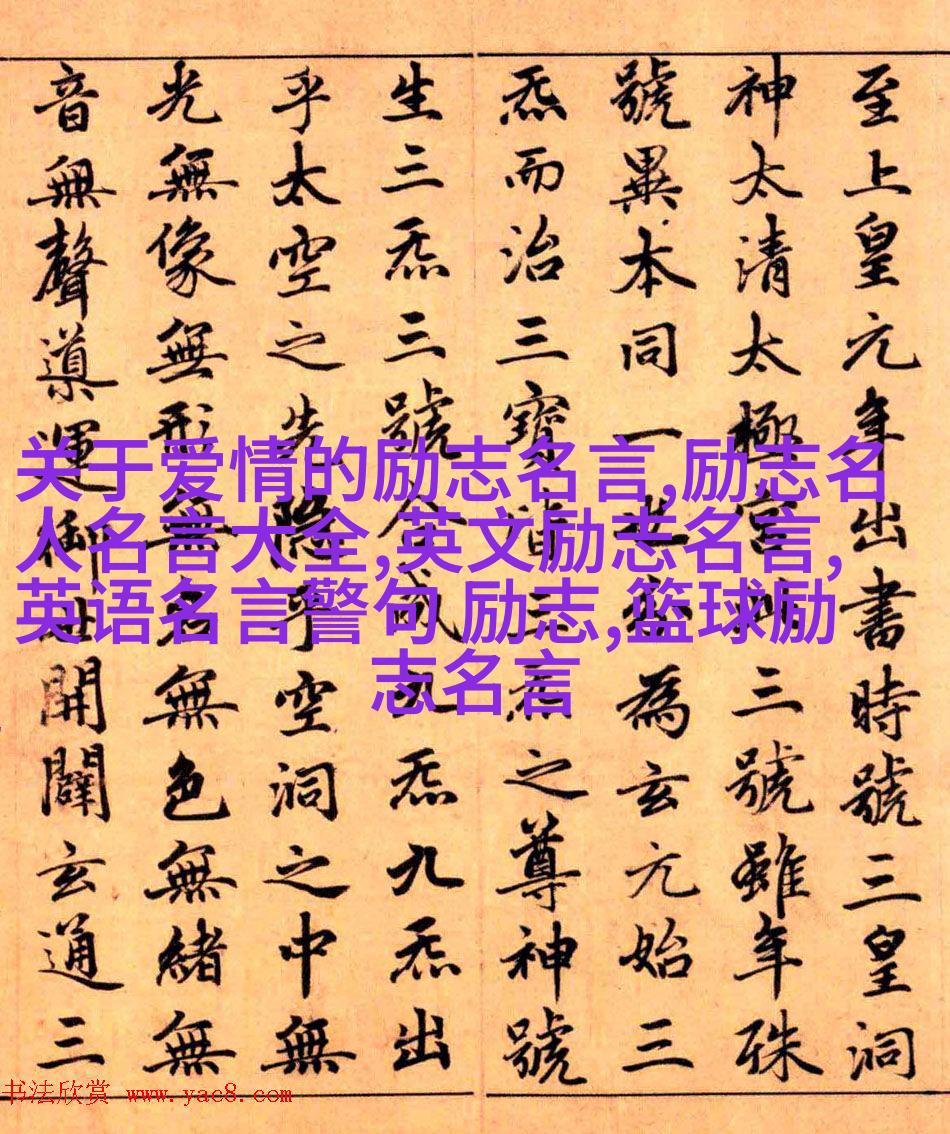 至上皇元年出書時號三皇洞
神太清太極宮三號雖年殊
號異本同一為玄元始三
炁而治三寶皆三炁之尊神號
生三炁三號合成九炁九炁出
乎太空之先隱乎空洞之中無
光無像無形無名無色無緒無
音無聲導運御世開闢玄通三
关于爱情的励志名言,励志名
人名言大全,英文励志名言,
英语名言警句 励志,篮球励
志名言
书法欣赏 www.yac8.com